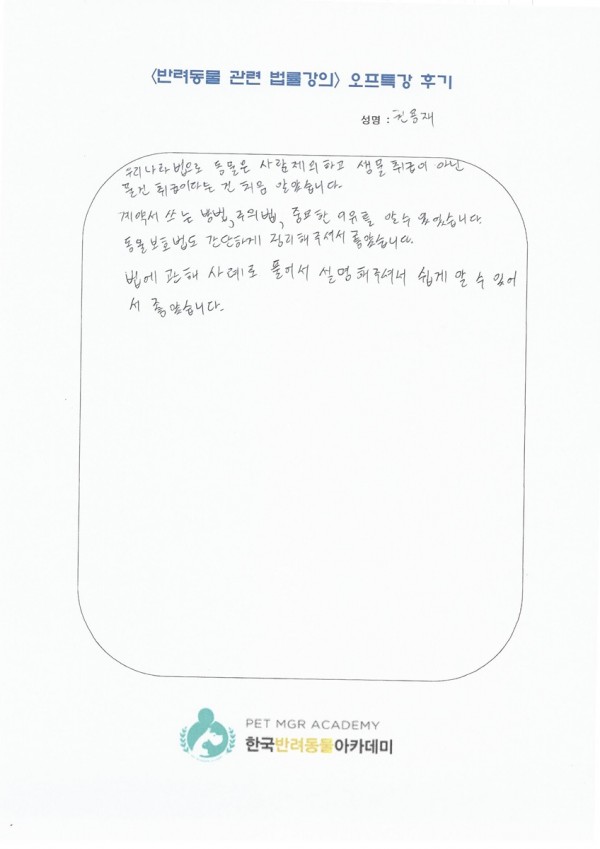 <반려동물 관련 법률강의> 오프특강 후기
성명 : 권용재
우리나라 법으로 동물은 사람제외하고 생물 취급이 아닌
물건 취급이다는 건 처음 알았습니다.
계약서 쓰는 방법, 주의법, 중요한 이유를 알 수 있었습니다.
동물보호법도 간단하게 정리해주셔서 좋았습니다.
법에 관해 사례로 풀어서 설명해주셔서 쉽게 알 수 있어
서 좋았습니다.
PET MGR ACADEMY
한국반려동물아카데미